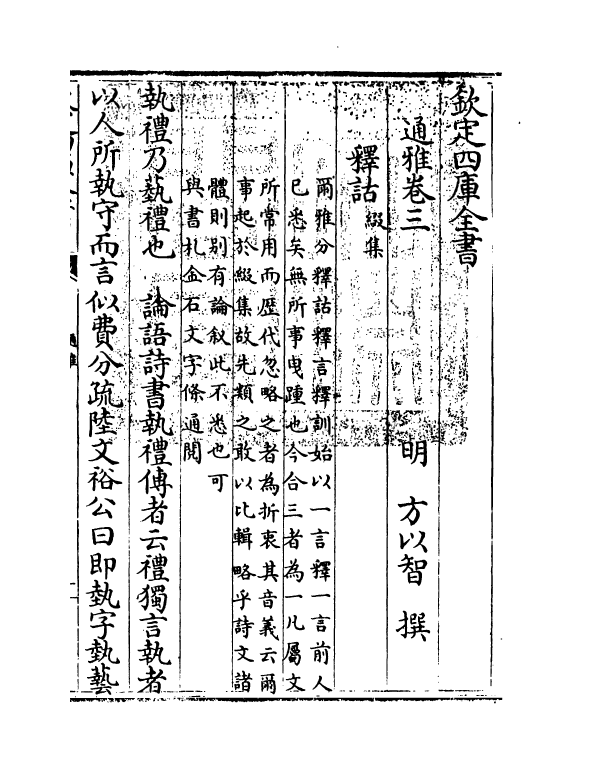 欽定四庫全書
通雅卷三
明 方以智 撰
釋詁 綴集
爾雅分釋詁釋言釋訓始以一言釋一言前人
已悉矣無所事曳踵也今合三者為一凡屬文
所常用而歴代忽略之者為折衷其音義云爾
事起於綴集故先類之敢以比輯略乎詩文諸
體則别有論叙此不悉也可
與書札金石文字條通閲
執禮乃蓺禮也 論語詩書執禮傳者云禮獨言執者
以人所執守而言似費分疏陸文裕公曰即埶字埶藝
通雅